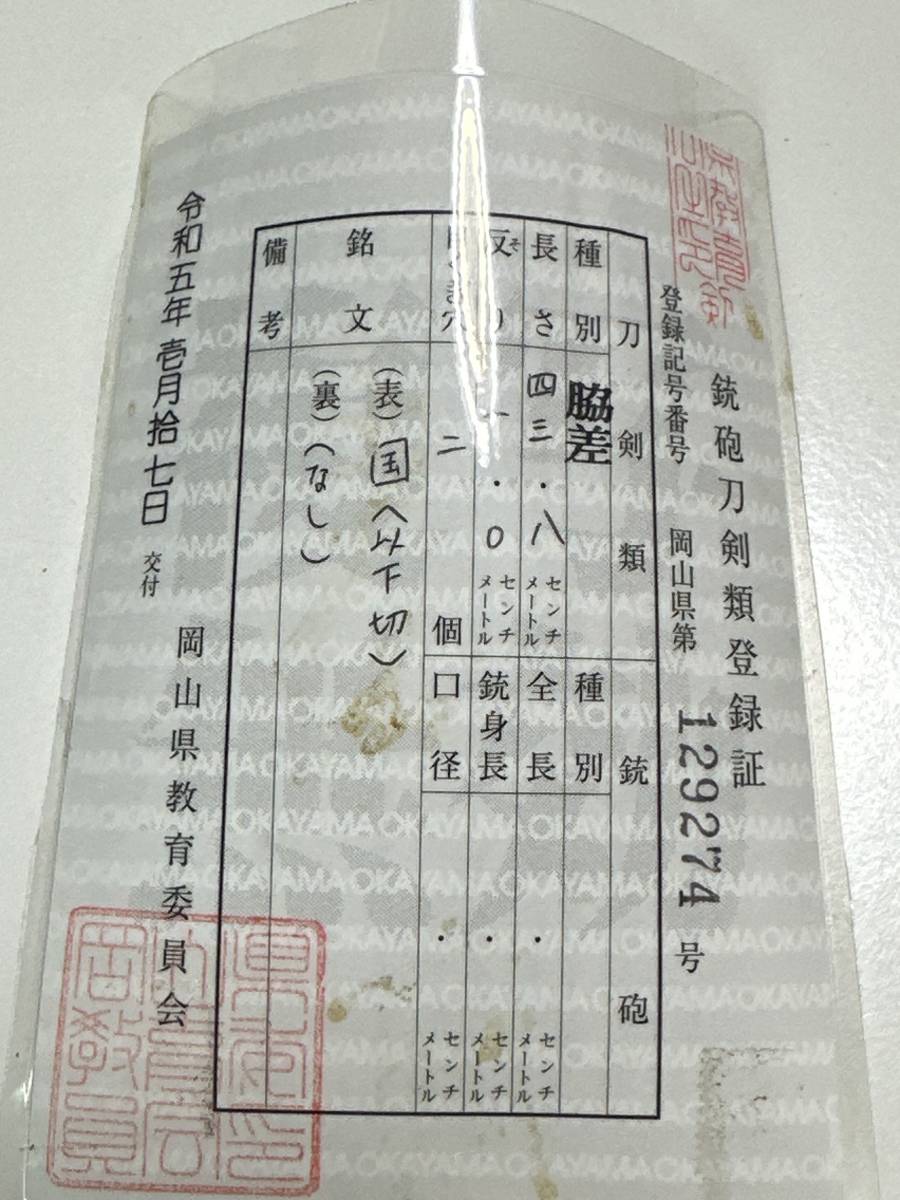 銃砲刀剣類登録証
登録記号番号 岡山県第 129274 号
刀剣類 銃砲
種別 脇差 種別
長さ 四三.八 センチメートル 全長 . センチメートル
反り 一.0 センチメートル 銃身長 . センチメートル
二 個 口径 . センチメートル
銘文 (表) 国(以下切)
(裏)(なし)
備考
令和五年壱月拾七日 交付
岡山県教育委員会